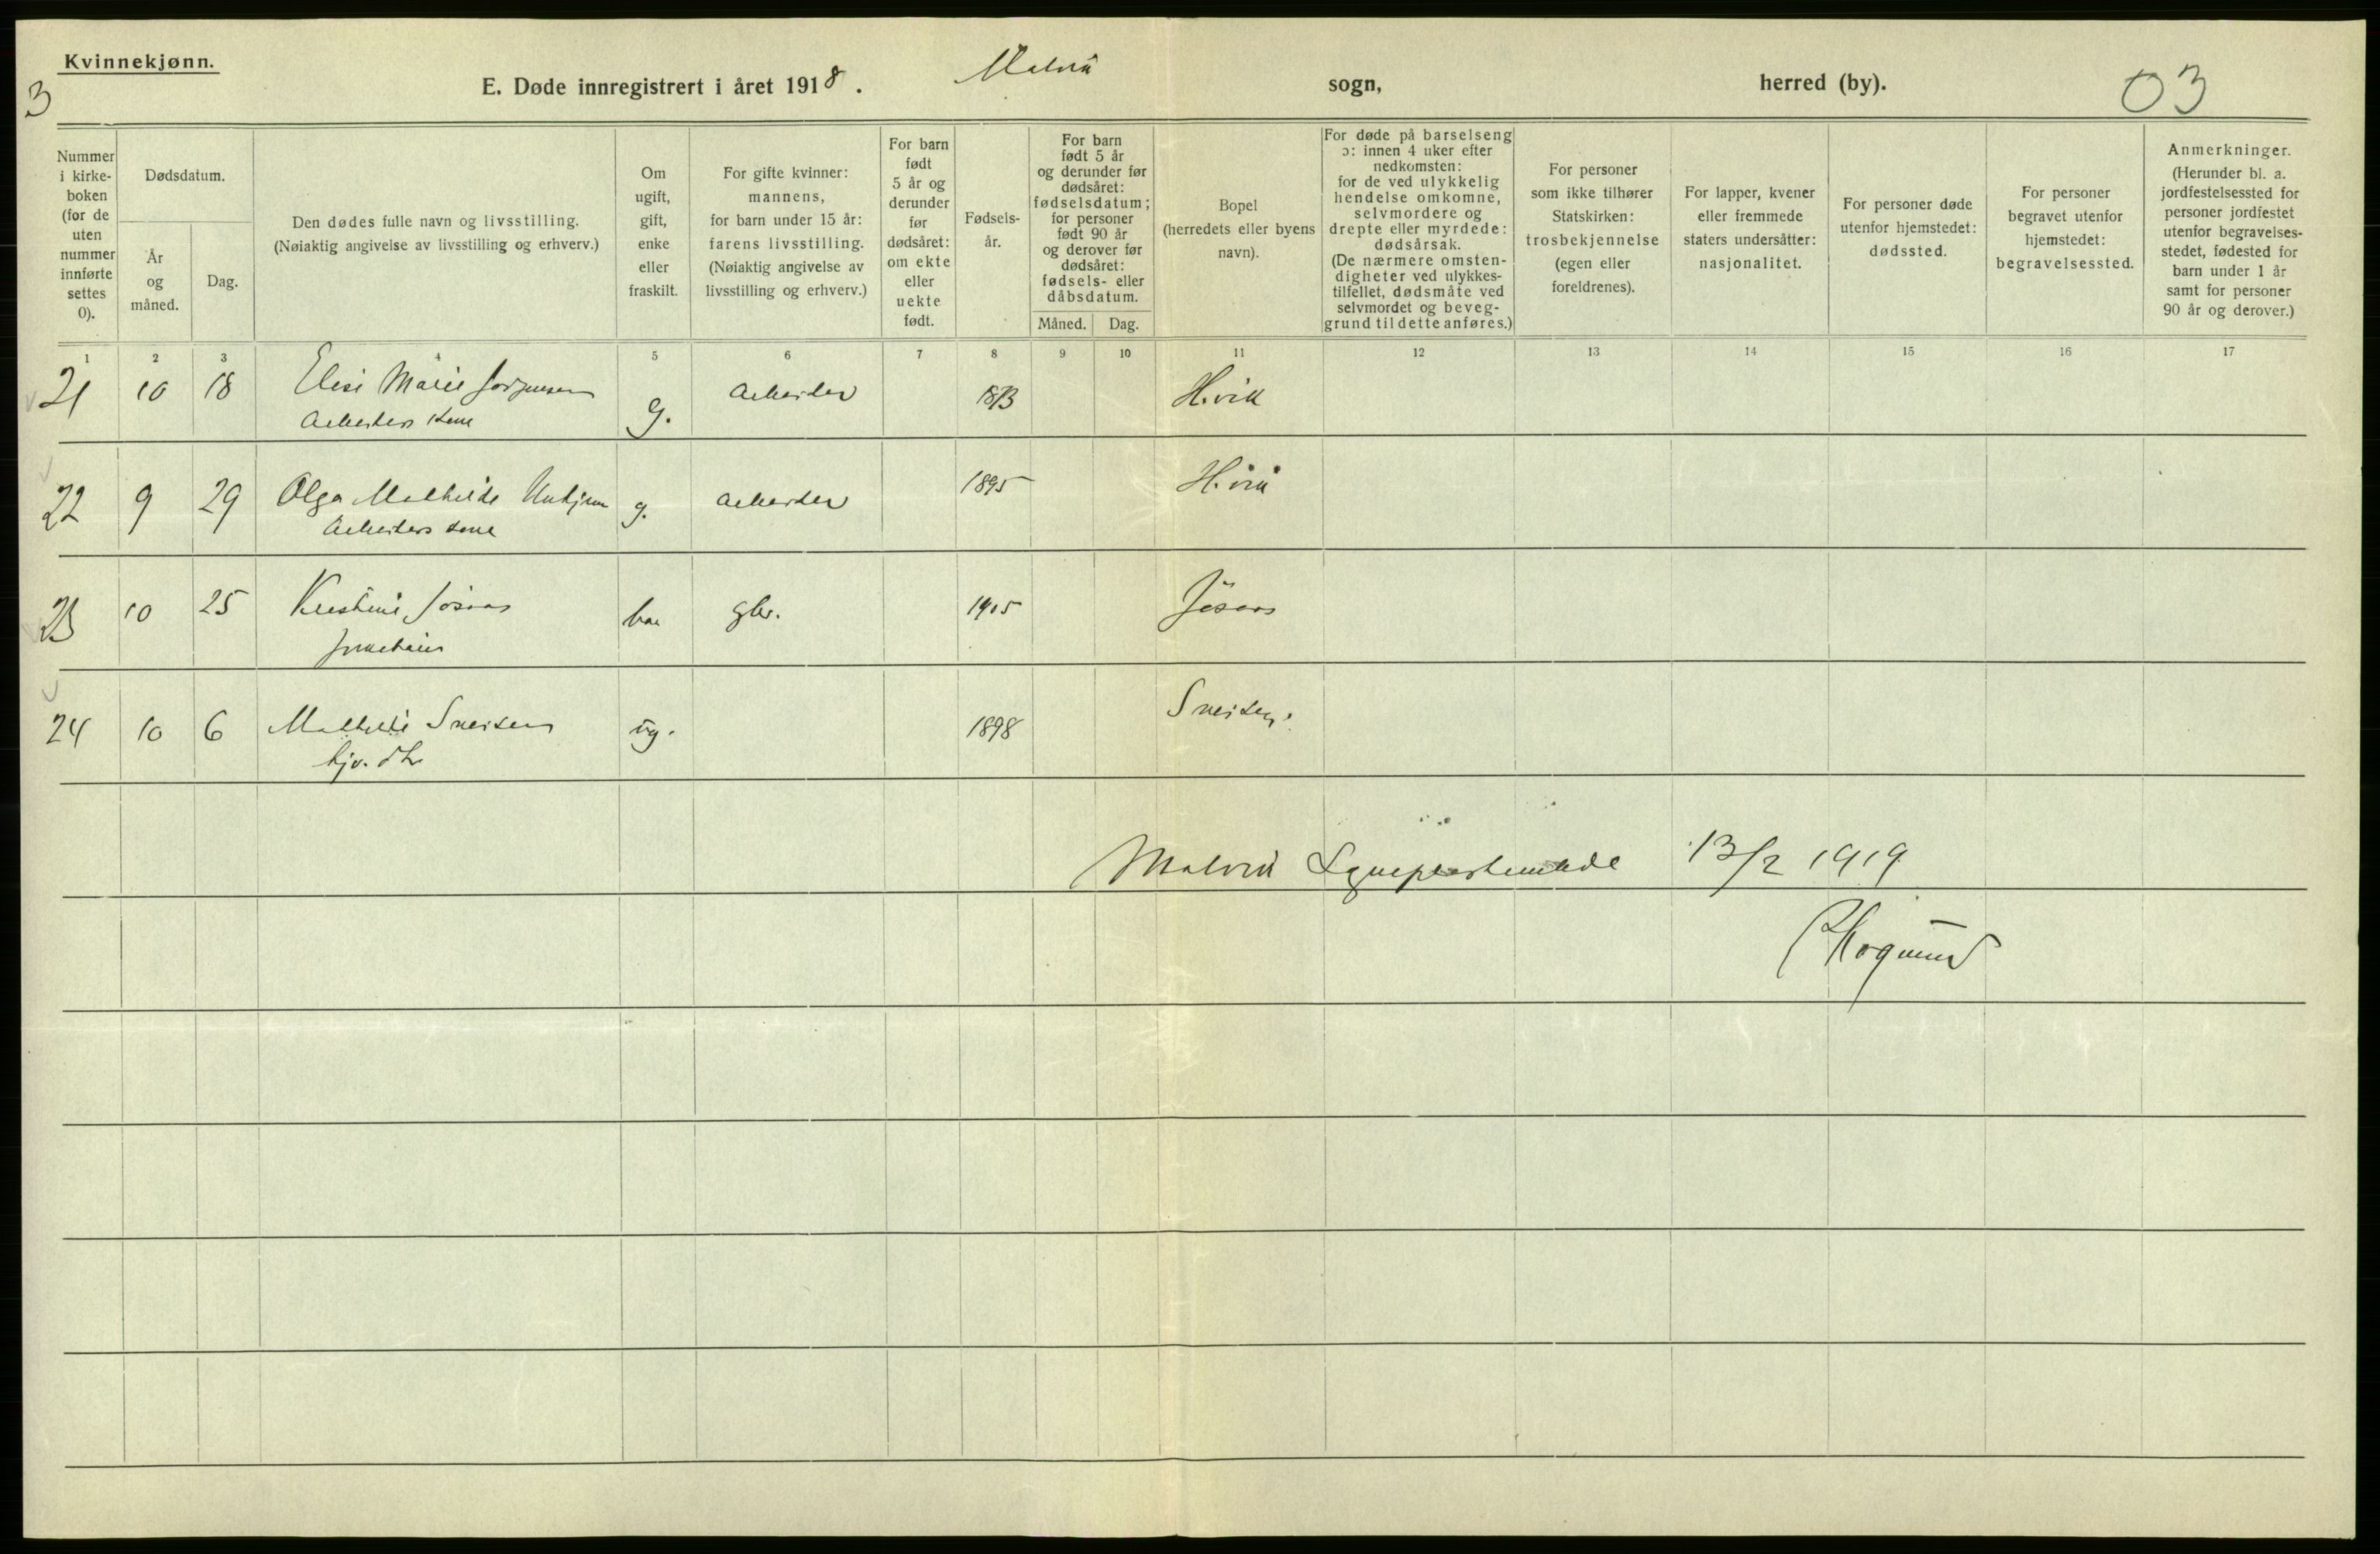 Kvinnekjønn.
3
E. Døde innregistrert i året 1918. Malvik sogn, herred (by).
03
Nummer i kirke-boken (for de uten nummer innførte settes 0).
Dødsdatum.
År og måned.
Dag.
Den dødes fulle navn og livsstilling.
(Nøiaktig angivelse av livsstilling og erhverv.)
Om ugift, gift, enke eller fraskilt.
For gifte kvinner: mannens, for barn under 15 år: farens livsstilling. (Nøiaktig angivelse av livsstilling og erhverv.)
For barn født 5 år og derunder før dødsåret: om ekte eller uekte født.
Fødsels-år.
For barn født 5 år og derunder før dødsåret: fødselsdatum; for personer født 90 år og derover før dødsåret: fødsels- eller dåbsdatum.
Måned. Dag.
Bopel (herredets eller byens navn).
For døde på barselseng ɔ: innen 4 uker efter nedkomsten: for de ved ulykkelig hendelse omkomne, selvmordere og drepte eller myrdede: dødsårsak. (De nærmere omsten-digheter ved ulykkes-tilfellet, dødsmåte ved selvmordet og beveg-grund til dette anføres.)
For personer som ikke tilhører Statskirken: trosbekjennelse (egen eller foreldrenes).
For lapper, kvener eller fremmede staters undersåtter: nasjonalitet.
For personer døde utenfor hjemstedet: dødssted.
For personer begravet utenfor hjemstedet: begravelsessted.
Anmerkninger. (Herunder bl. a. jordfestelsessted for personer jordfestet utenfor begravelses-stedet, fødested for barn under 1 år samt for personer 90 år og derover.)
1 2 3 4 5 6 7 8 9 10 11 12 13 14 15 16 17
21 10 18 Elise Marie Jørgensen g. Arbeider 1873 H.vik
Arbeiders kone
22 9 29 Olga Mathilde g. Arbeider 1895 H.vik
Arbeiders kone
23 10 25 Kristine Jøsaas gbr. 1915 Jøsaas
24 10 6 Mathilde Sneisen ug. 1898 Sneisen.
Malvik Sogneprestembede 13/2 1919